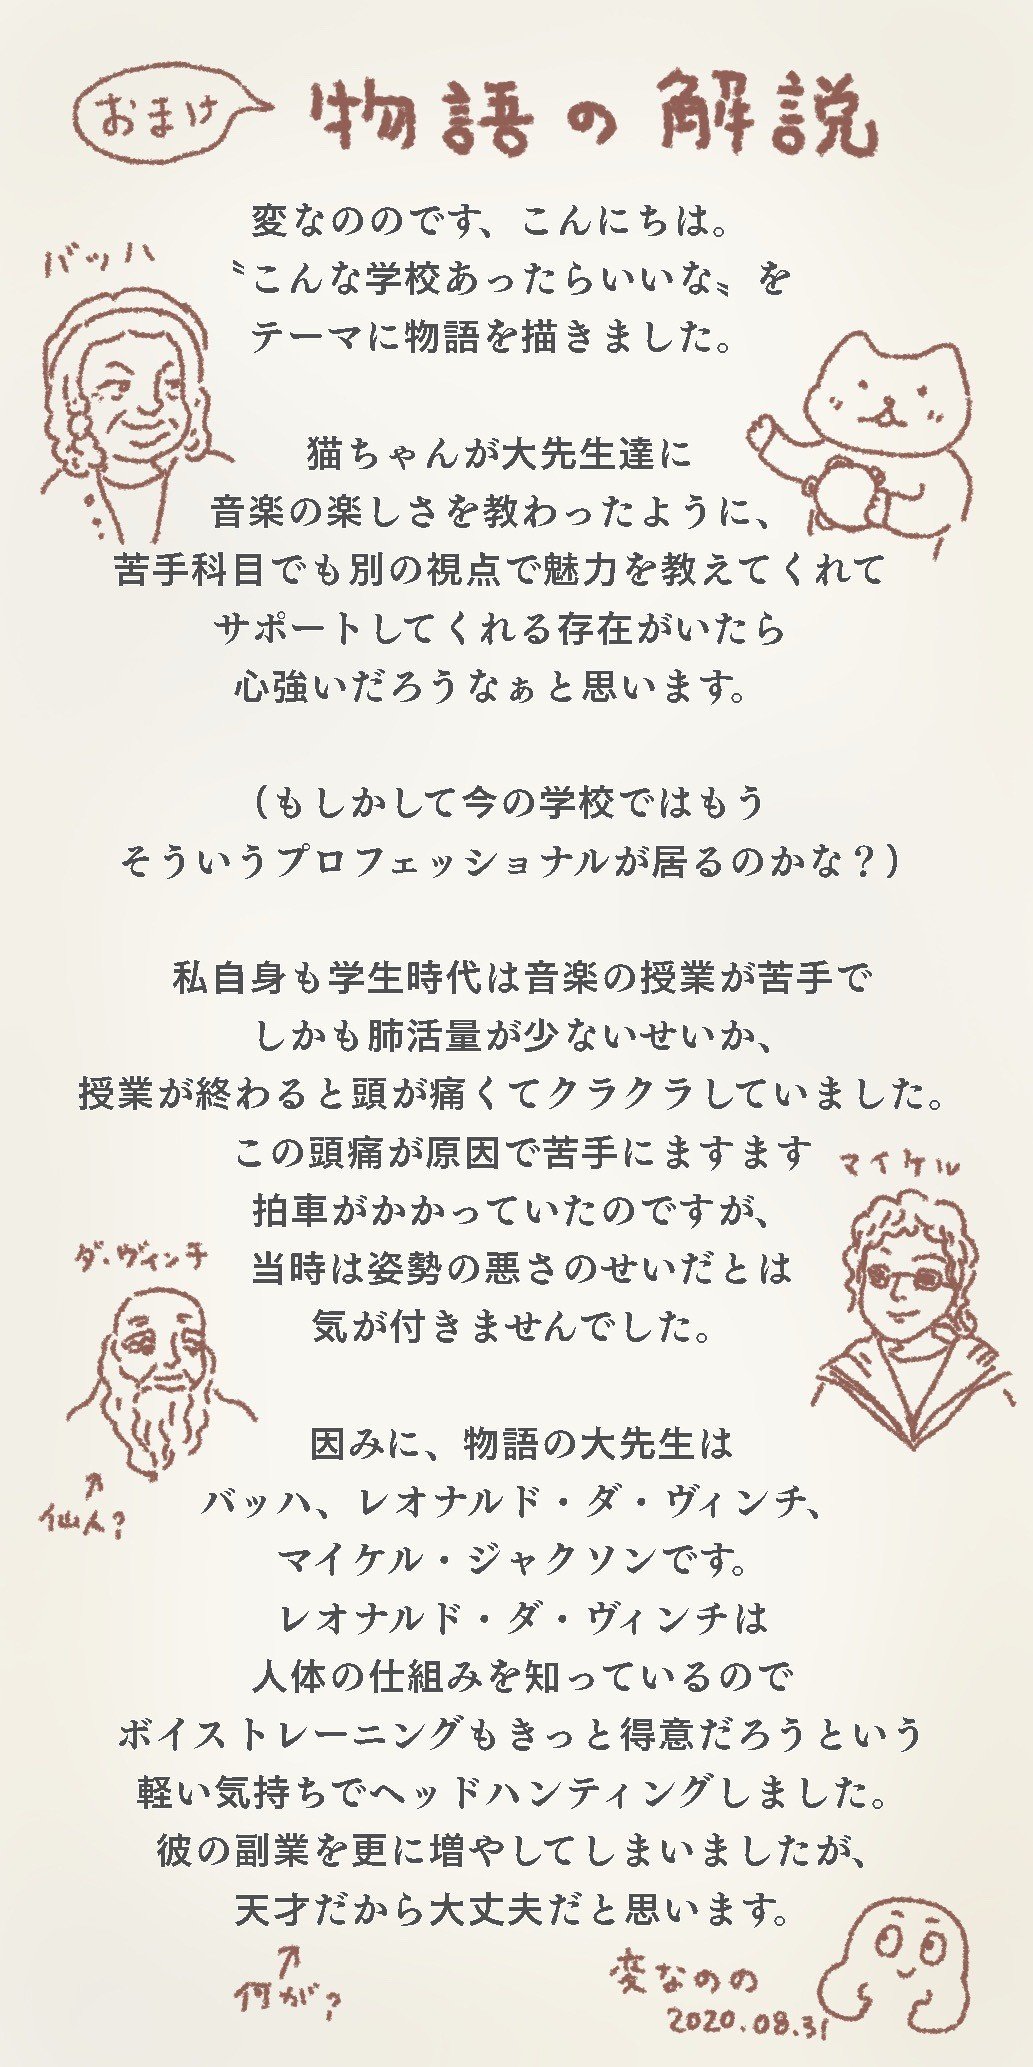 おまけ
物語の解説
変なののです、こんにちは。
〝こんな学校あったらいいな〟を
テーマに物語を描きました。
バッハ
猫ちゃんが大先生達に
音楽の楽しさを教わったように、
苦手科目でも別の視点で魅力を教えてくれて
サポートしてくれる存在がいたら
心強いだろうなぁと思います。
（もしかして今の学校ではもう
そういうプロフェッショナルが居るのかな？）
私自身も学生時代は音楽の授業が苦手で
しかも肺活量が少ないせいか、
授業が終わると頭が痛くてクラクラしていました。
この頭痛が原因で苦手にますます
拍車がかかっていたのですが、
当時は姿勢の悪さのせいだとは
気が付きませんでした。
マイケル
ダ・ヴィンチ
↑
仙人?
因みに、物語の大先生は
バッハ、レオナルド・ダ・ヴィンチ、
マイケル・ジャクソンです。
レオナルド・ダ・ヴィンチは
人体の仕組みを知っているので
ボイストレーニングもきっと得意だろうという
軽い気持ちでヘッドハンティングしました。
彼の副業を更に増やしてしまいましたが、
天才だから大丈夫だと思います。
↑
何が?
変なのの
2020.08.31